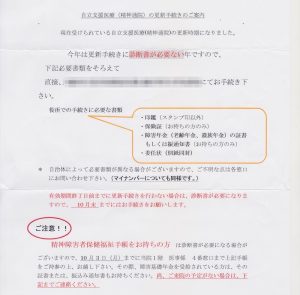 自立支援医療（精神通院）の更新手続きのご案内
現在受けられている自立支援医療(精神通院)の更新時期になりました。
今年は更新手続きに診断書が必要ない年ですので、
下記必要書類をそろえて
直接、
にてお手続き下さい。
役所での手続きに必要な書類
・印鑑（スタンプ印以外）
・保険証（お持ちの方のみ）
・障害年金（老齢年金、遺族年金）の証書
もしくは振込通知書（お持ちの方のみ）
・委任状（同紙同封）
* 自治体によって必要書類が異なる場合がございますので、ご不明な点は各窓口
にお問い合わせ下さい。（マイナンバーについても同様です。）
有効期間終了日前までに更新手続きを行わない場合は、診断書が必要になりま
すので、 10月末 までにはお手続きをお願いします。
ご注意！！
精神障害者保健福祉手帳をお持ちの方 は診断書が必要になる場合が
ございますので、10月3日（月）までに当院1階 医事課 4番窓口まで上記手帳
をご持参の上、お越し下さい。その際、障害基礎年金を受給されている方は、その
証書または、振込み通知書もお持ちください。尚、ご来院の予定がない場合は、下
記までご連絡ください。